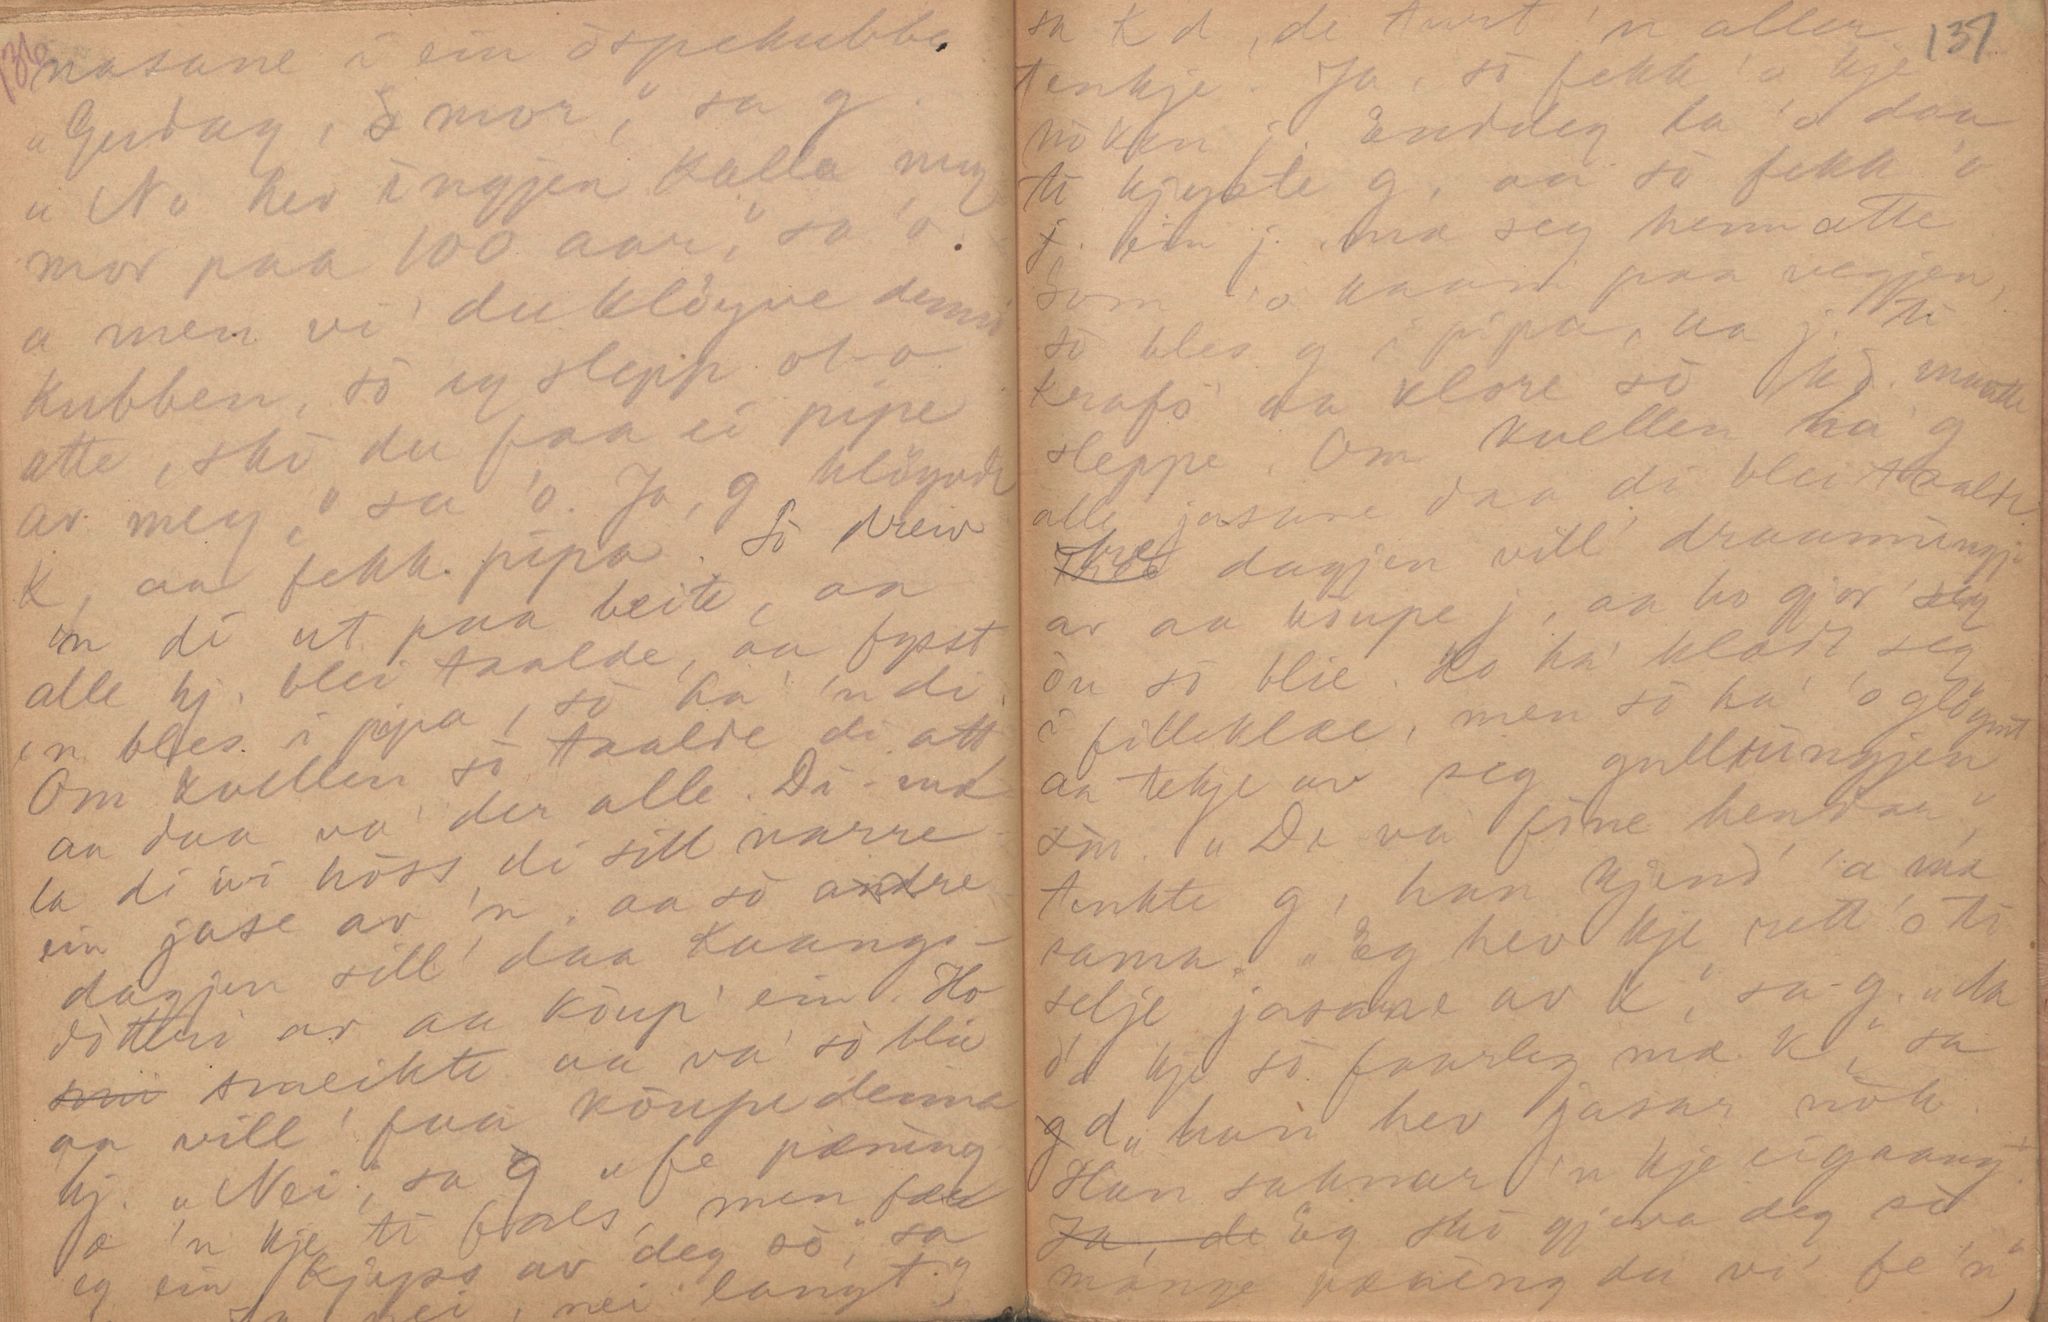 136
nasane i ein òspekubbe.
"Gudag, mor," sa g.
"No hev ingjen kalla meg
mor paa 100 aar," sa 'o.
"men vi' du klöyve denna
kubben, sò eg slepp ot-o
atte, skò du faa ei pipe
av meg," sa 'o. Ja, g klöyvde
k, aa fekk pipa. Sò dreiv
'n di ut paa beite, aa
alle hj. blei taalde, aa fysst
'n bles i pipa, sò ha' 'n di.
Om kvellen sò taalde di att
aa daa va' der alle. Di
la di ivi höss di sill narre
ein jase av 'n. aa sò andre
dagjen sill' daa kaangs-
dòtteri av aa köup' ein. Ho
smeikte aa va' sò bli
aa vill' faa köupe denna
hj. "Nei," sa g "fe pæning
æ 'n kje ti fals, men fær
eg ein kjyss av deg sò," sa
nei, nei langt
137
sa Kd, de turt 'n aller
tenkje. Ja, sò fekk 'o kje
nòken j. Enddeg la 'o daa
ti kjysste g, aa sò fekk 'o
ein j. mæ seg heimatte
Som 'o kaam paa vegjen,
sò bles g i pipa, aa j. ti
krafs' aa klore sò Kd. maatte
sleppe. Om kvellen ha' g
alle jasane daa di blei taalde.
Tree dagjen vill' draanningji
av aa köupe j, aa ho gjor' seg
òu sò blie. Ho ha' kladt seg
i filleklæ, men sò ha' 'o glöymt
aa tekje av seg gullringjen
sin. "De va' fine hendar",
tenkte g, han kjend' 'a mæ
sama. "Eg hev kje rett 'o ti
selje jasane av k," sa g. "da
æ kje sò faarleg mæ k," sa
d, "han hev jasar nòk.
Han saknar 'n kje eigaang".
Ja, de Eg skò gjeva deg sò
mange pæning du vi' fe 'n",